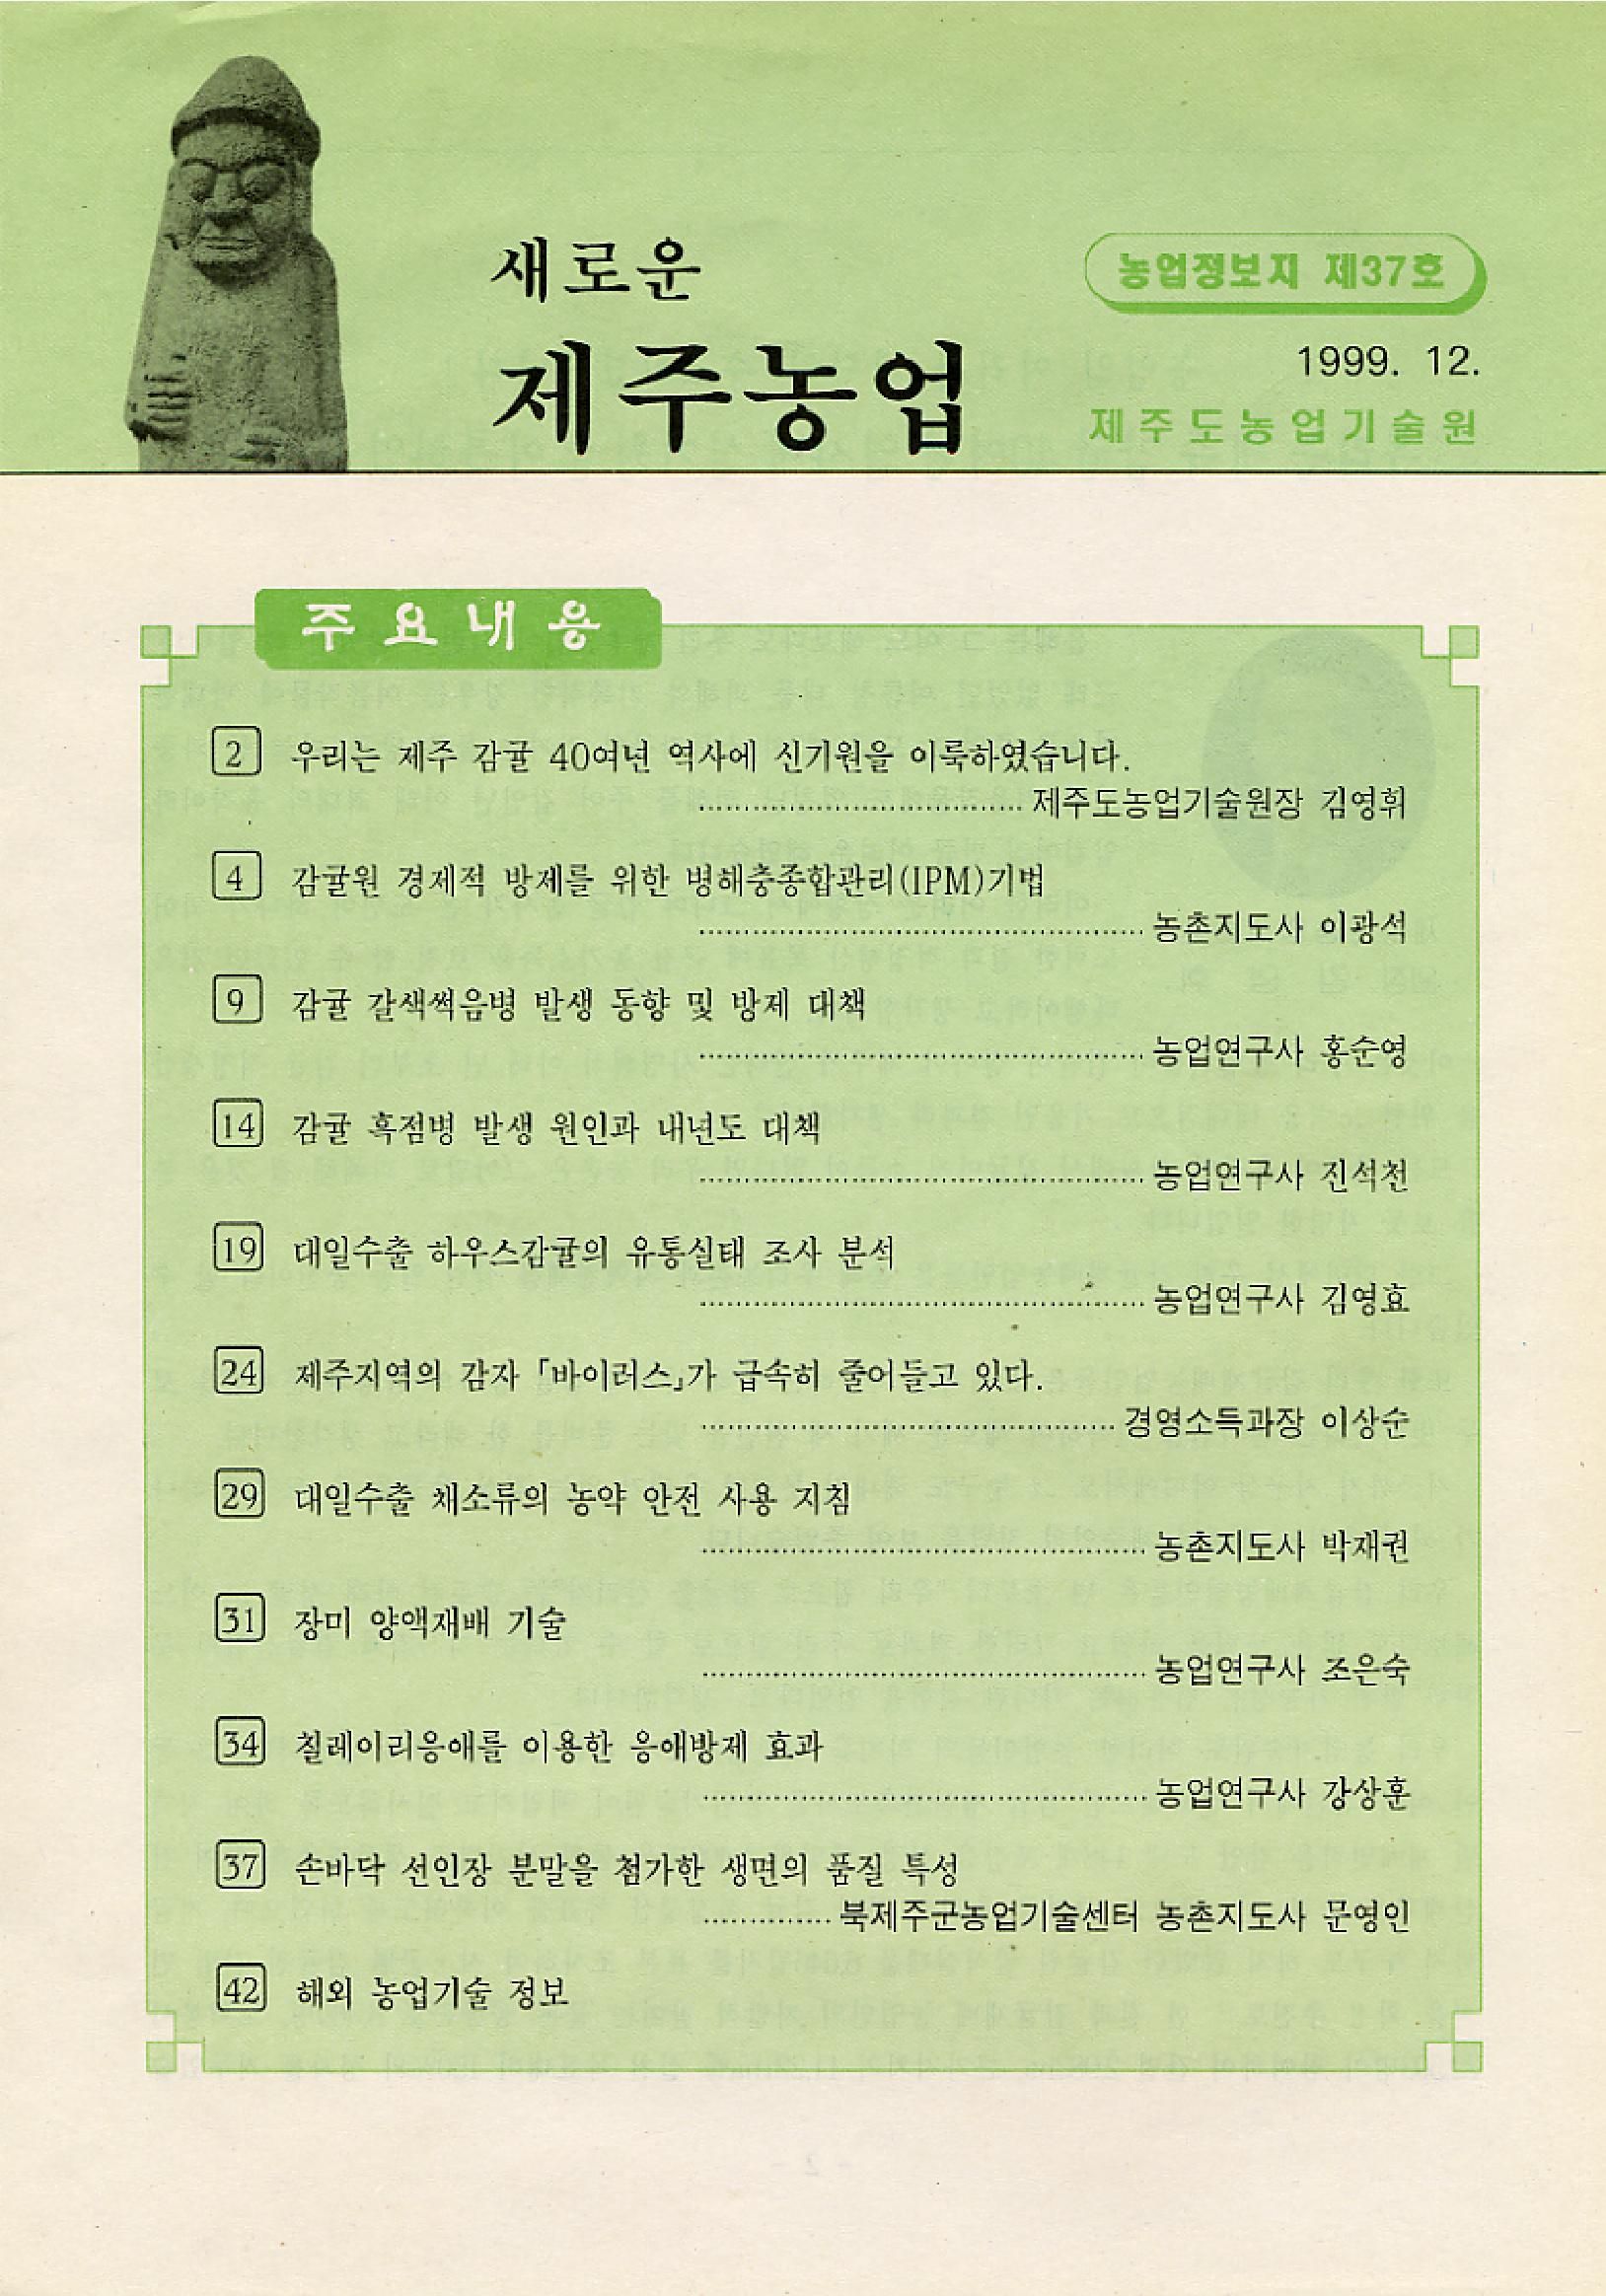 새로운
제주농업
농업정보지 제37호
1999. 12.
제주도농업기술원
주요내용
2 우리는 제주 감귤 40여년 역사에 신기원을 이룩하였습니다.
제주도농업기술원장 김영휘
4 감귤원 경제적 방제를 위한 병해충종합관리(IPM)기법
농촌지도사 이광석
9 감귤 갈색썩음병 발생 동향 및 방제 대책
농업연구사 홍순영
14 감귤 흑점병 발생 원인과 내년도 대책
농업연구사 진석천
19 대일수출 하우스감귤의 유통실태 조사 분석
농업연구사 김영효
24 제주지역의 감자 「바이러스」가 급속히 줄어들고 있다.
경영소득과장 이상순
29 대일수출 채소류의 농약 안전 사용 지침
농촌지도사 박재권
31 장미 양액재배 기술
농업연구사 조은숙
34 칠레이리응애를 이용한 응애방제 효과
농업연구사 강상훈
37 손바닥 선인장 분말을 첨가한 생면의 품질 특성
북제주군농업기술센터 농촌지도사 문영인
42 해외 농업기술 정보